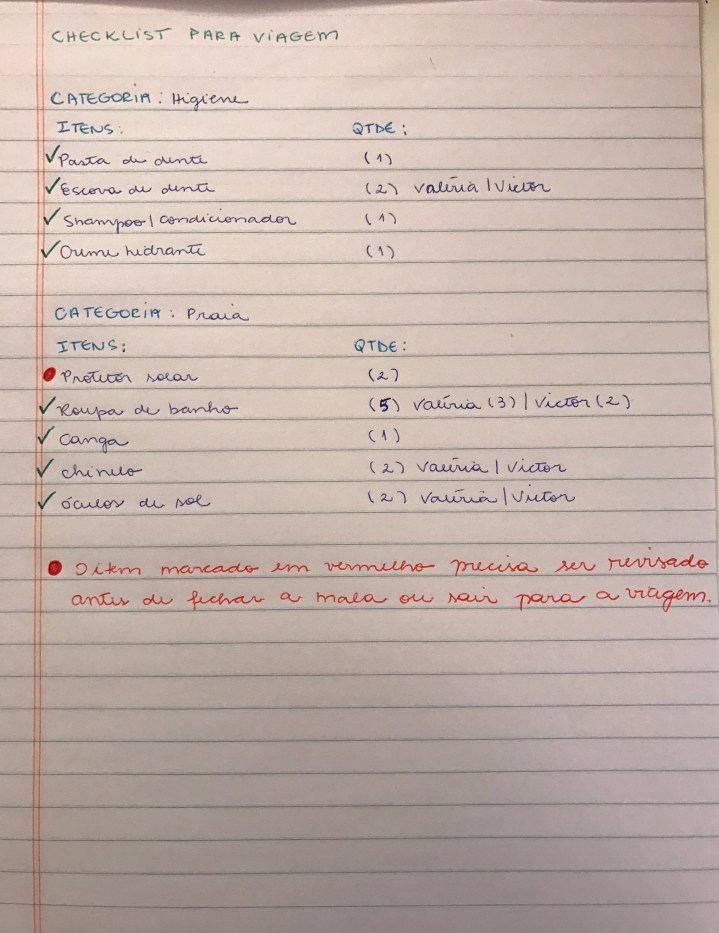 CHECKLIST PARA VIAGEM
CATEGORIA: Higiene
ITENS: QTDE:
✓ Pasta de dente (1)
✓ Escova de dente (2) Valéria | Victor
✓ Shampoo | condicionador (1)
✓ Creme hidrante (1)
CATEGORIA: Praia
ITENS: QTDE:
● Protetor solar (2)
✓ Roupa de banho (5) Valéria (3) | Victor (2)
✓ Canga (1)
✓ chinelo (2) Valéria | Victor
✓ óculos de sol (2) Valéria | Victor
● O item marcado em vermelho precisa ser revisado
antes de fechar a mala ou sair para a viagem.